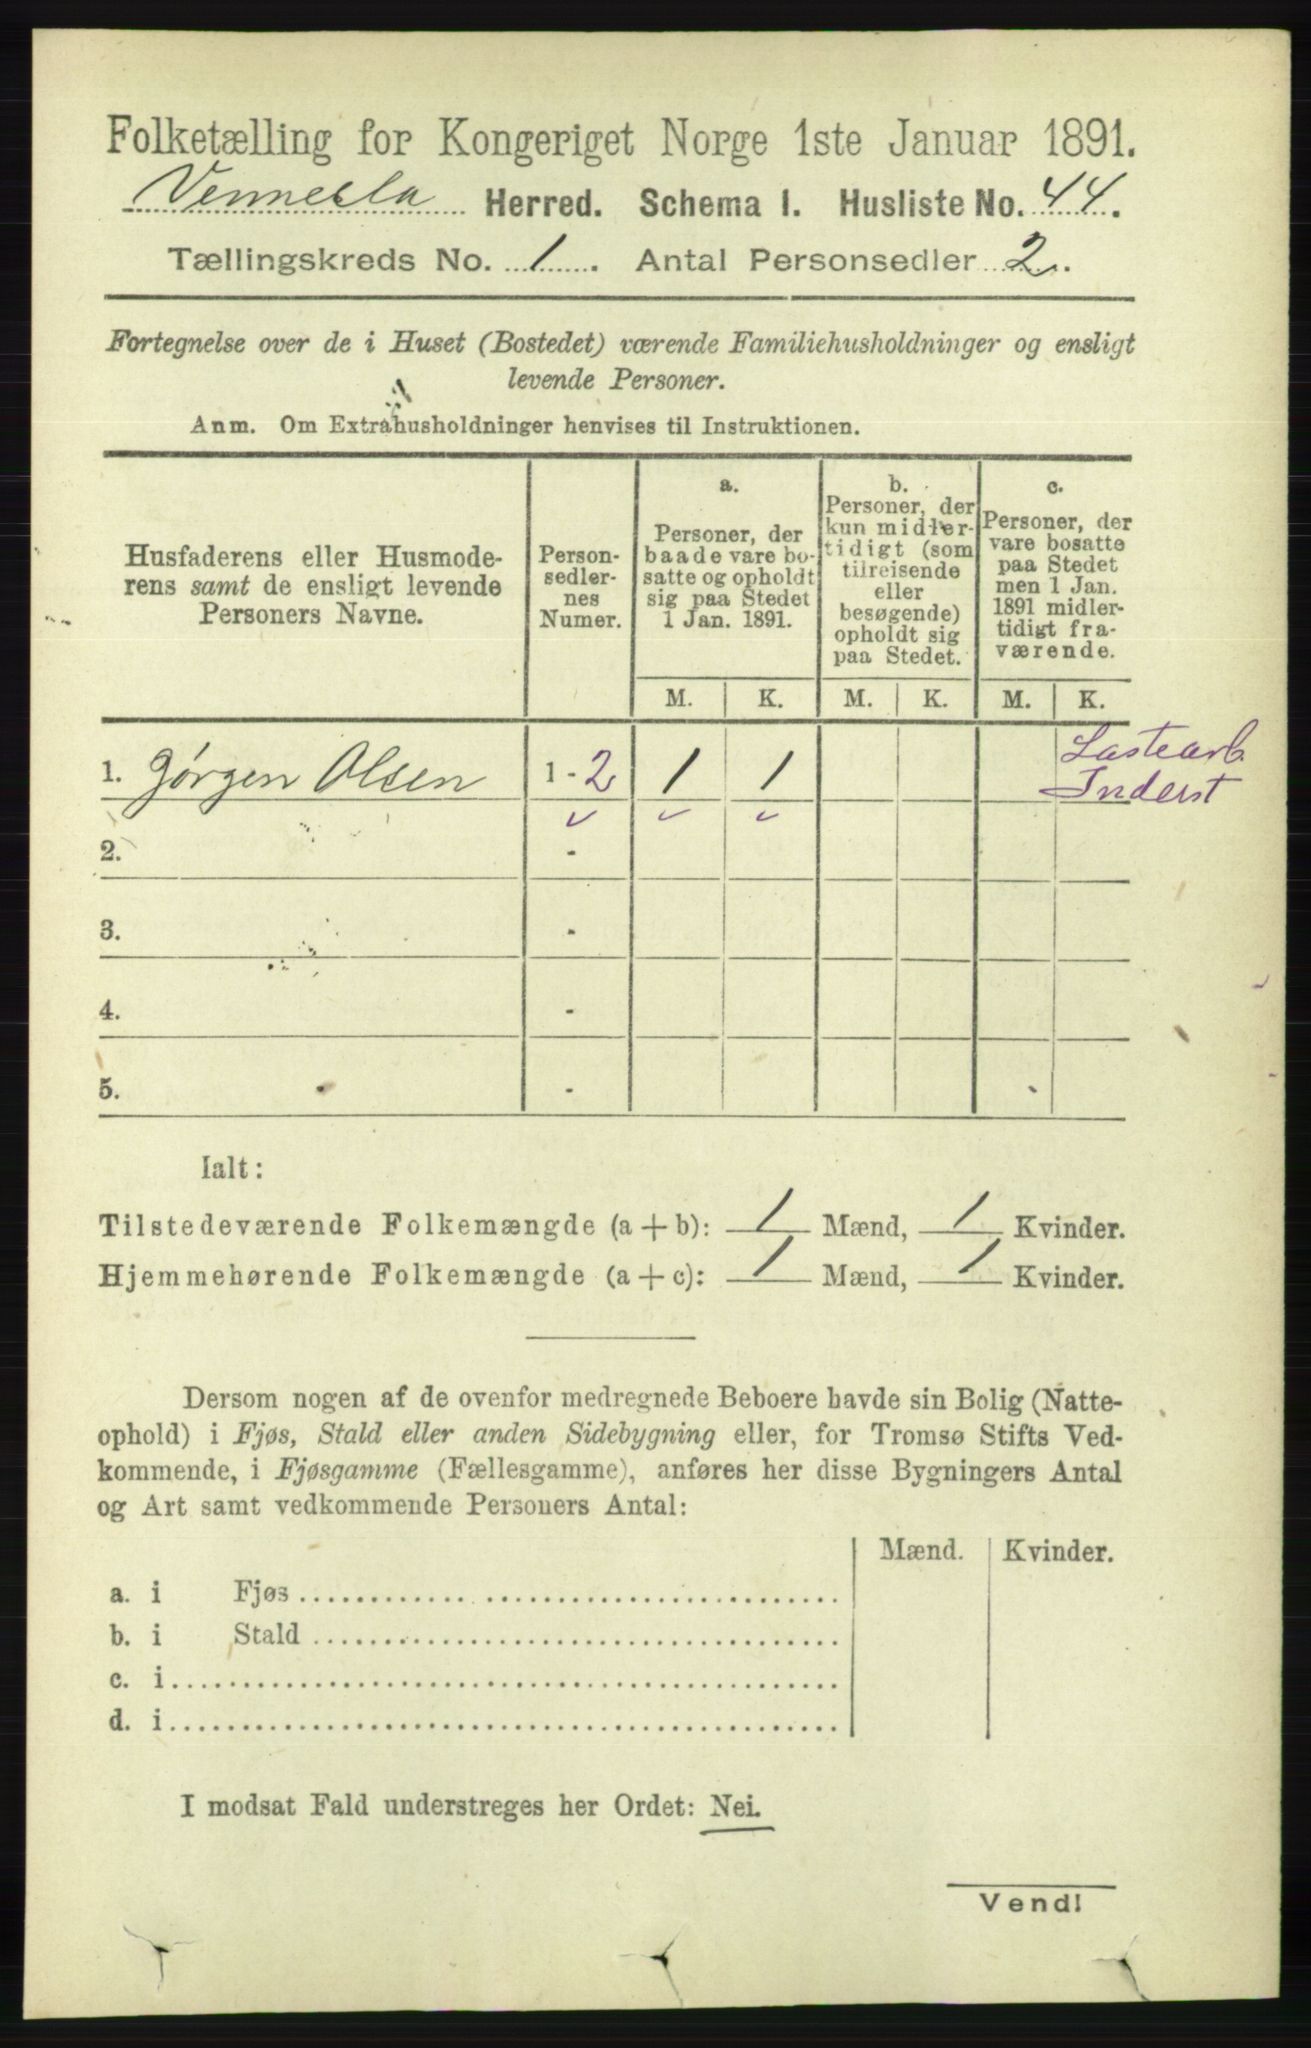 Folketælling for Kongeriget Norge 1ste Januar 1891.
Vennesla Herred. Schema I. Husliste No. 44.
Tællingskreds No. 1. Antal Personsedler 2.
Fortegnelse over de i Huset (Bostedet) værende Familiehusholdninger og ensligt
levende Personer.
Anm. Om Extrahusholdninger henvises til Instruktionen.
Husfaderens eller Husmode-
rens samt de ensligt levende
Personers Navne.
Person-
sedler-
nes
Numer.
a.
Personer, der
baade vare bo-
satte og opholdt
sig paa Stedet
1 Jan. 1891.
b.
Personer, der
kun midler-
tidigt (som
tilreisende
eller
besøgende)
opholdt sig
paa Stedet.
c.
Personer, der
vare bosatte
paa Stedet
men 1 Jan.
1891 midler-
tidigt fra-
værende.
M. K. M. K. M. K.
1. Jørgen Olsen 1 - 2 1 1 Lastearb.
Inderst
2. -
3. -
4. -
5. -
Ialt:
Tilstedeværende Folkemængde (a + b): 1 Mænd, 1 Kvinder.
Hjemmehørende Folkemængde (a + c): 1 Mænd, 1 Kvinder.
Dersom nogen af de ovenfor medregnede Beboere havde sin Bolig (Natte-
ophold) i Fjøs, Stald eller anden Sidebygning eller, for Tromsø Stifts Ved-
kommende, i Fjøsgamme (Fællesgamme), anføres her disse Bygningers Antal
og Art samt vedkommende Personers Antal:
Mænd. Kvinder.
a. i Fjøs
b. i Stald
c. i
d. i
I modsat Fald understreges her Ordet: Nei.
Vend!